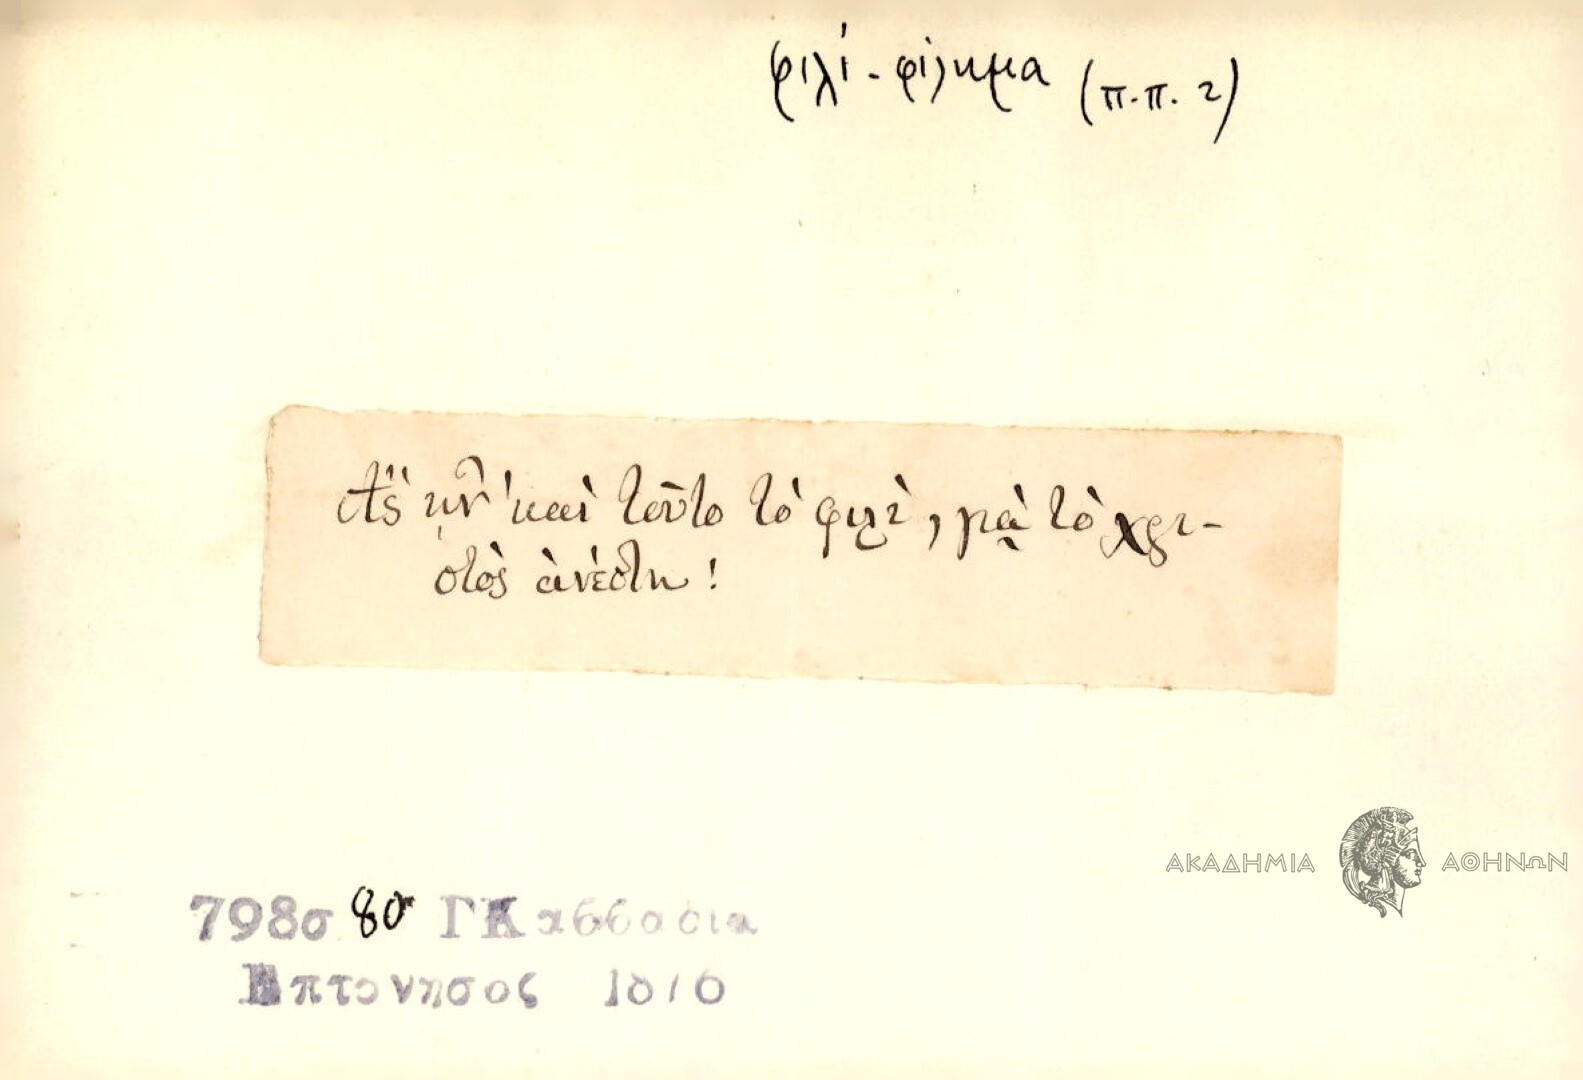 φιλί - φίλημα (π.π. 2)
Ἄς ᾖν' καὶ τοῦτο τὸ φιλὶ, μὰ τὸ χρι-
στὸς ἀνέστη!
ΑΚΑΔΗΜΙΑ ΑΘΗΝΩΝ
798σ 80 Γ
Επτονησος 1876